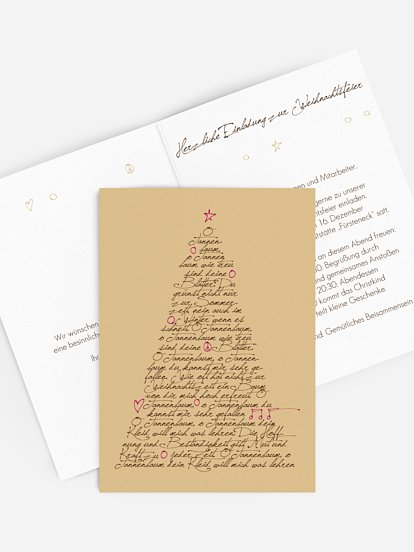 Herzliche Einladung zur Weihnachtsfeier
en und Mitarbeiter,
gerne zu unserer
tsfeier einladen.
16. Dezember
tstätte „Fürsteneck" satt.
an diesem Abend freuen:
00. Begrüßung durch
nd gemeinsames Anstoßen
20:30. Abendessen
0 kommt das Christkind
teilt kleine Geschenke.
d Gemütliches Beisammensein
Wir wünschen
eine besinnliche
Ih
O
Tannen
baum,
o Tannen
baum wie treu
sind deine
Blätter. Du
grünst nicht nur
zur Sommer
zeit nein auch im
Winter wenn es
schneit. O Tannenbaum,
o Tannenbaum wie treu
sind deine Blätter.
O Tannenbaum, o Tannen
baum du kannst mir sehr ge-
fallen. Wie oft hat nicht zur
Weihnachtszeit ein Baum
von dir mich hoch erfreut. O
Tannenbaum, o Tannenbaum du
kannst mir sehr gefallen.
O Tannenbaum, o Tannenbaum dein
Kleid will mich was lehren: Die Hoff-
nung und Beständigkeit gibt Mut und
Kraft zu jeder Zeit. O Tannenbaum, o
Tannenbaum dein Kleid will mich was lehren